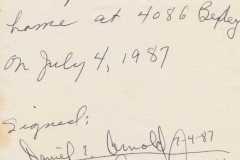 home at 4086 Bexley
on July 4, 1987
Signed:
Daniel E. Arnold 7-4-87